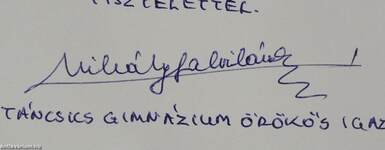 TISZTELETTEL.
Mihályfalvi László
TÁNCSICS GIMNÁZIUM ÖRÖKÖS IGAZ